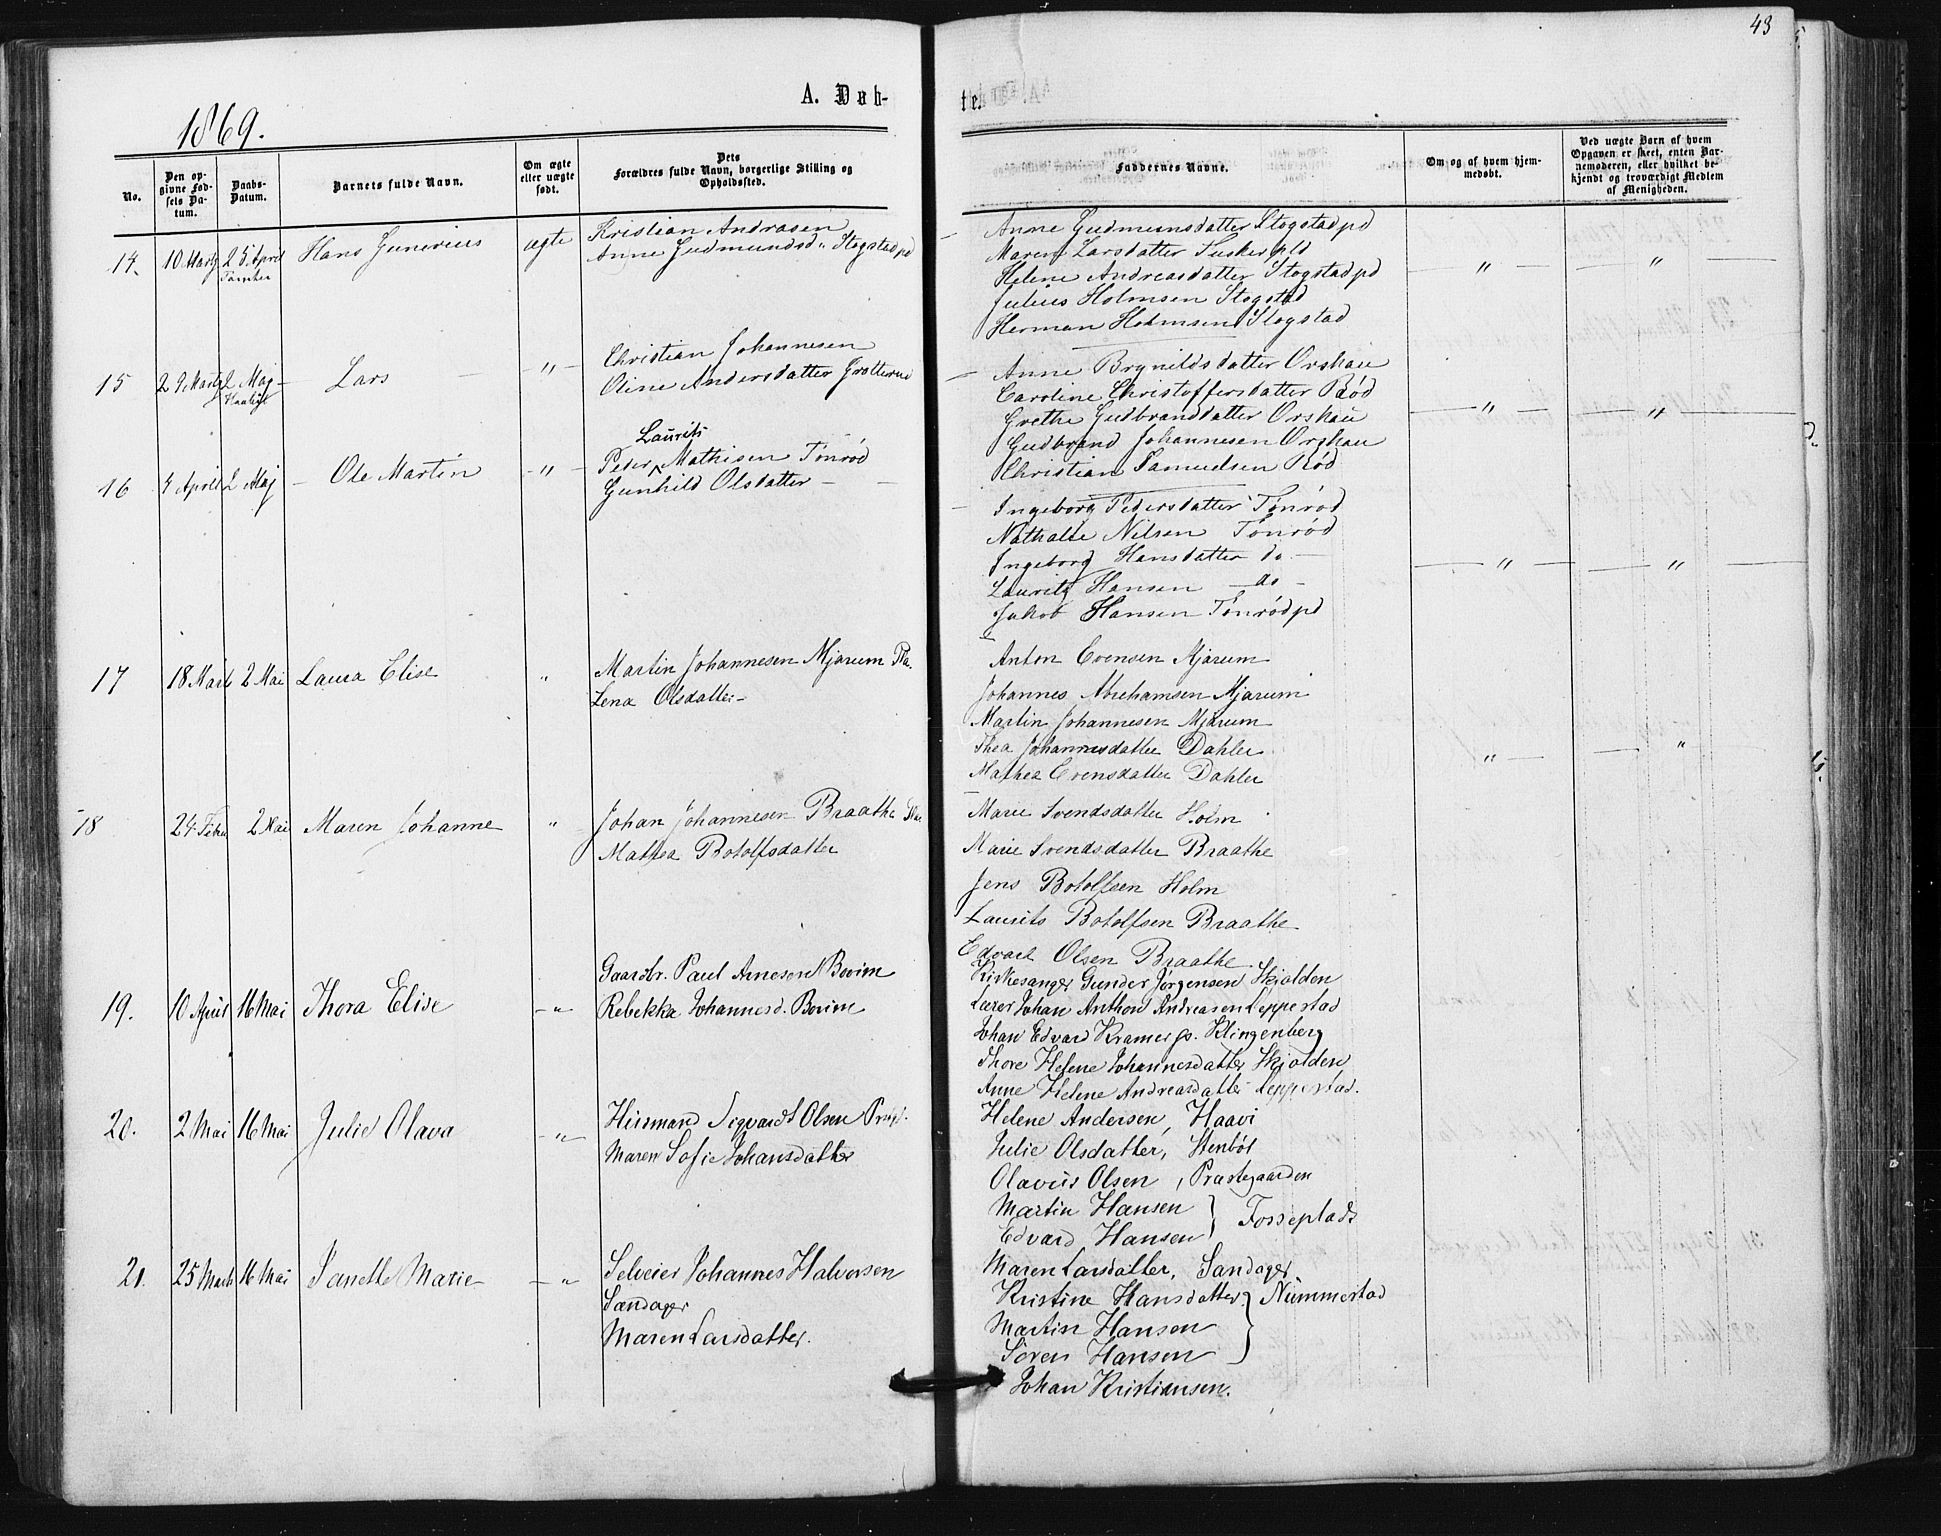 43
1869.
A. Døb-
te.
No.
Den opgivne Fødsels Datum.
Daabs-Datum.
Barnets fulde Navn.
Om ægte eller uægte født.
Dets Forældres fulde Navn, borgerlige Stilling og Opholdssted.
Faddernes Navne.
Om og af hvem hjemmedøbt.
Ved uægte Barn af hvem Opgaven er skeet, enten Barnemoderen, eller hvilket bekjendt og troværdigt Medlem af Menigheden.
14. 10 Marts 25 April Hans Gunerius ægte Kristian Andrasen
Anne Gudmundsd. Stogstad pd
Anne Gudmunsdatter Stogstad pd
Maren Larsdatter pld
Helene Andreasdatter Stogstad pd
Julius Holmsen Stogstad
Herman Holmsen Stogstad
15 29 Marts 2 Maj Lars " Christian Johannesen
Oline Andersdatter Grøtterud
Anne Brynildsdatter Orskau
Caroline Christoffersdatter Rød
Grethe Gudbrandsdatter Orskau
Gudbrand Johannesen Orskau
Christian Samuelsen Rød
16 4 April 2 Maj Ole Martin " Peter Laurits Mathisen Tønrød
Gunhild Olsdatter
Ingeborg Pedersdatter Tønrød
Nathalie Nilsen Tønrød
Ingeborg Hansdatter do
Laurits Hansen do
Jakob Hansen Tønrød pd
17 18 Marts 2 Mai Laura Elise " Martin Johannesen Mjærum Pla.
Lena Olsdatter
Anton Evensen Mjærum
Johannes Abrehamsen Mjærum
Martin Johannesen Mjærum
Thea Johannesdatter Dahler
Mathea Evensdatter Dahler
18 24 Febr 2 Mai Maren Johanne " Johan Johannesen Braathe
Mathea Botolfsdatter
Marie Svendsdatter Holm
Marie Svendsdatter Braathe
Jens Botolfsen Holm
Laurits Botolfsen Braathe
Edvart Olsen Braathe
19. 10 April 16 Mai Thora Elise " Gaardbr. Paul Arnesen Bovim
Rebekka Johannesd. Bovim
Kirkesanger Gunder Jørgensen Skjolden
Lærer Johan Anthon Andreasen Leppestad
Johan Edvard Kramer p. Klingenberg
Thore Helene Johannesdatter Skjolden
Anne Helene Andreasdatter Leppestad.
20. 2 Mai 16 Mai Julie Olava " Huusmand Sigvardt Olsen Præst.
Maren Sofie Johansdatter
Helene Andersen, Haavi
Julie Olsdatter, Stenbøl
Olavus Olsen, Præstegaarden
Martin Hansen
Edvard Hansen } Fosseplads
21. 25 Marts 16 Mai Janette Marie " Selveier Johannes Halvorsen
Sandager
Maren Larsdatter.
Maren Larsdatter, Sandager
Kristine Hansdatter } Nummestad
Martin Hansen
Søren Hansen
Johan Kristiansen.